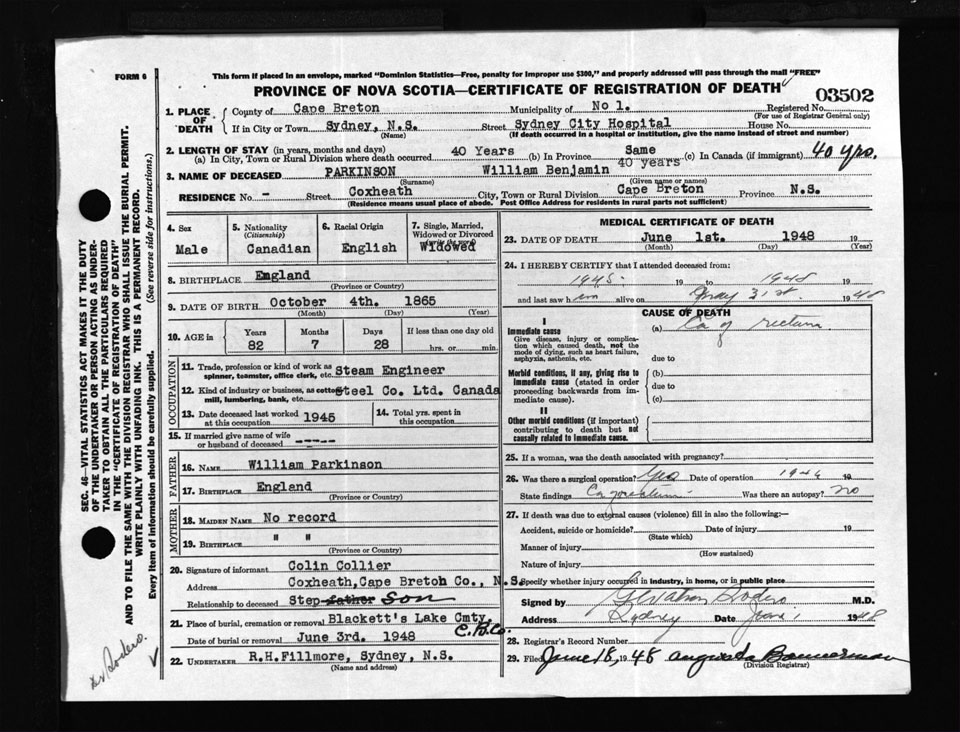 FORM 6
This form if placed in an envelope, marked "Dominion Statistics—Free, penalty for improper use $300," and properly addressed will pass through the mail "FREE"
PROVINCE OF NOVA SCOTIA—CERTIFICATE OF REGISTRATION OF DEATH
03502
1. PLACE OF DEATH
County of Cape Breton Municipality of No 1. Registered No.
(For use of Registrar General only)
If in City or Town Sydney, N.S. Street Sydney City Hospital House No.
(Name) (If death occurred in a hospital or institution, give the name instead of street and number)
2. LENGTH OF STAY (in years, months and days)
(a) In City, Town or Rural Division where death occurred 40 Years (b) In Province Same 40 years (c) In Canada (if immigrant) 40 yrs.
3. NAME OF DECEASED PARKINSON William Benjamin
(Surname) (Given name or names)
RESIDENCE No - Street Coxheath City, Town or Rural Division Cape Breton Province N.S.
(Residence means usual place of abode. Post Office Address for residents in rural parts not sufficient)
4. Sex
Male
5. Nationality
(Citizenship)
Canadian
6. Racial Origin
English
7. Single, Married, Widowed or Divorced
(write the word)
Widowed
8. BIRTHPLACE England
(Province or Country)
9. DATE OF BIRTH October 4th. 1865
(Month) (Day) (Year)
10. AGE in
Years Months Days If less than one day old
82 7 28 hrs. or min.
OCCUPATION
11. Trade, profession or kind of work as spinner, teamster, office clerk, etc. Steam Engineer
12. Kind of industry or business, as cotton mill, lumbering, bank, etc. Steel Co. Ltd. Canada
13. Date deceased last worked at this occupation 1945
14. Total yrs. spent in this occupation
15. If married give name of wife or husband of deceased -----
FATHER
16. NAME William Parkinson
17. BIRTHPLACE England
(Province or Country)
MOTHER
18. MAIDEN NAME No record
19. BIRTHPLACE " "
(Province or Country)
20. Signature of informant Colin Collier
Address Coxheath, Cape Breton Co., N.S.
Relationship to deceased Step father Son
21. Place of burial, cremation or removal Blackett's Lake Cmty. C.B.Co.
Date of burial or removal June 3rd. 1948
22. UNDERTAKER R.H.Fillmore, Sydney, N.S.
(Name and address)
MEDICAL CERTIFICATE OF DEATH
23. DATE OF DEATH June 1st. 1948 19
(Month) (Day) (Year)
24. I HEREBY CERTIFY that I attended deceased from:
1945 19 to 1948 19
and last saw him alive on May 31st 1948
CAUSE OF DEATH
I
Immediate cause
Give disease, injury or complication which caused death, not the mode of dying, such as heart failure, asphyxia, asthenia, etc.
(a) Ca of rectum
due to
Morbid conditions, if any, giving rise to immediate cause (stated in order proceeding backwards from immediate cause).
(b)
due to
(c)
II
Other morbid conditions (if important) contributing to death but not causally related to immediate cause.
25. If a woman, was the death associated with pregnancy?
26. Was there a surgical operation? Yes Date of operation 1946 19
State findings Ca Was there an autopsy? no
27. If death was due to external causes (violence) fill in also the following:—
Accident, suicide or homicide? Date of injury 19
(State which)
Manner of injury
(How sustained)
Nature of injury
Specify whether injury occurred in industry, in home, or in public place
Signed by M.D.
Address Sydney Date June 1 1948
28. Registrar's Record Number
29. Filed June 18, 1948 Bannerman
(Division Registrar)
SEC. 46—VITAL STATISTICS ACT MAKES IT THE DUTY
OF THE UNDERTAKER OR PERSON ACTING AS UNDERTAKER TO OBTAIN ALL THE PARTICULARS REQUIRED
IN THE "CERTIFICATE OF REGISTRATION OF DEATH"
AND TO FILE THE SAME WITH THE DIVISION REGISTRAR WHO SHALL ISSUE THE BURIAL PERMIT.
WRITE PLAINLY WITH UNFADING INK. THIS IS A PERMANENT RECORD.
Every item of information should be carefully supplied. (See reverse side for instructions.)
Dr Sodero.